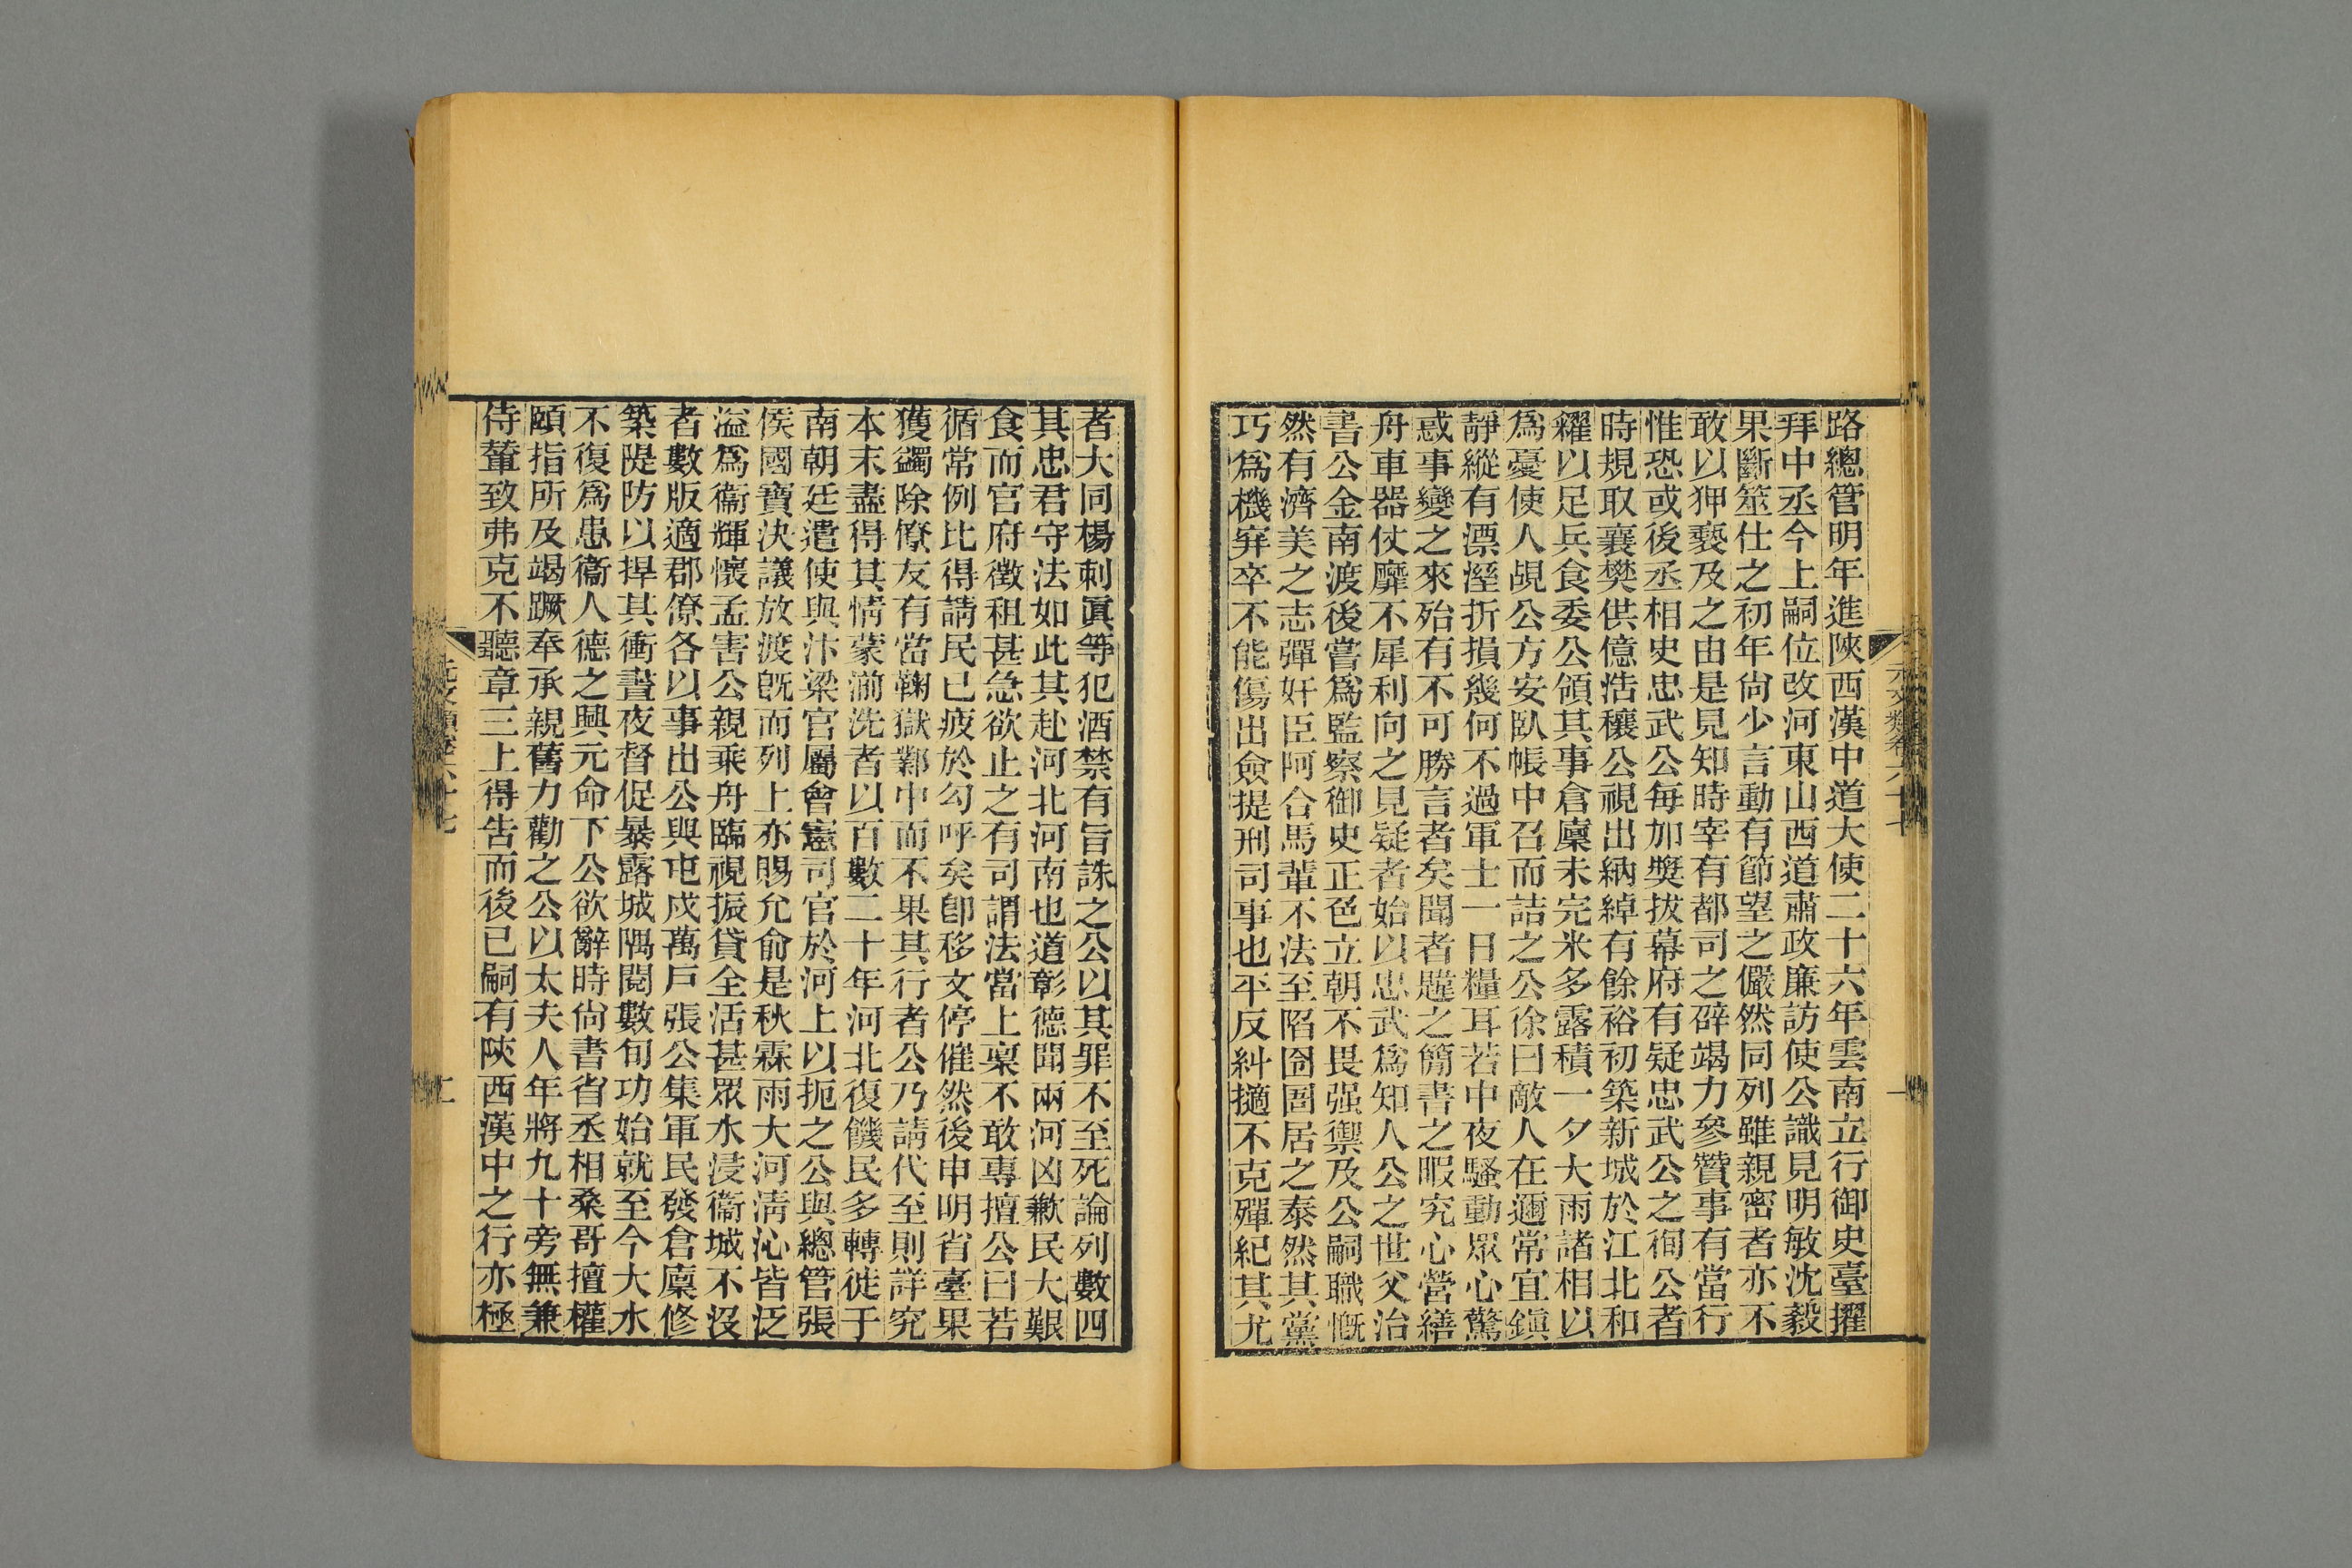 路總管明年進陝西漢中道大使二十六年雲南立行御史臺擢
拜中丞今上嗣位改河東山西道肅政廉訪使公識見明敏沈毅
果斷筮仕之初年尙少言動有節望之儼然同列雖親密者亦不
敢以狎褻及之由是見知時宰有都司之辟竭力參贊事有當行
惟恐或後丞相史忠武公每加獎拔幕府有疑忠武公之徇公者
時規取襄樊供億浩穰公視出納綽有餘裕初築新城於江北和
糴以足兵食委公領其事倉廩未完米多露積一夕大雨諸相以
爲憂使人覘公方安臥帳中召而詰之公徐曰敵人在邇常宜鎭
靜縱有漂溼折損幾何不過軍士一日糧耳若中夜騷動眾心驚
惑事變之來殆有不可勝言者矣聞者韙之簡書之暇究心營繕
舟車器仗靡不犀利向之見疑者始以忠武爲知人公之世父治
書公金南渡後嘗爲監察御史正色立朝不畏强禦及公嗣職慨
然有濟美之志彈奸臣阿合馬輩不法至陷囹圄居之泰然其黨
巧爲機穽卒不能傷出僉提刑司事也平反糾擿不克殫紀其尤
者大同楊刺眞等犯酒禁有旨誅之公以其罪不至死論列數四
其忠君守法如此其赴河北河南也道彰德聞兩河凶歉民大艱
食而官府徵租甚急欲止之有司謂法當上稟不敢專擅公曰若
循常例比得請民已疲於勾呼矣卽移文停催然後申明省臺果
獲蠲除僚友有當鞠獄鄴中而不果其行者公乃請代至則詳究
本末盡得其情蒙湔洗者以百數二十年河北復饑民多轉徙于
南朝廷遣使與汴梁官屬曾憲司官於河上以扼之公與總管張
侯國寶決議放渡旣而列上亦賜允俞是秋霖雨大河淸沁皆泛
溢爲衞輝懷孟害公親乘舟臨視振貸全活甚眾水浸衞城不沒
者數版適郡僚各以事出公與屯戍萬戶張公集軍民發倉廩修
築隄防以捍其衝晝夜督促暴露城隅閱數旬功始就至今大水
不復爲患衞人德之興元命下公欲辭時尙書省丞相桑哥擅權
頤指所及竭蹶奉承親舊力勸之公以太夫人年將九十旁無兼
侍輦致弗克不聽章三上得告而後已嗣有陝西漢中之行亦極